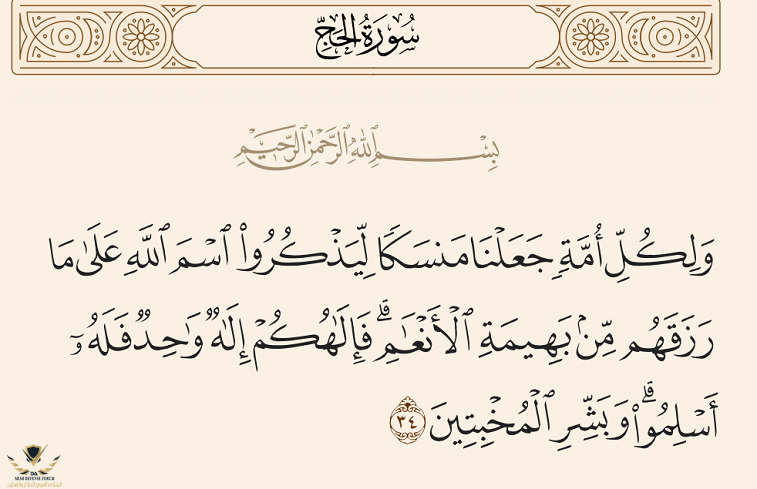 سُورَةُ الحَجِّ
بِسْمِ ٱللَّهِ ٱلرَّحْمَٰنِ ٱلرَّحِيمِ
وَلِكُلِّ أُمَّةٍ جَعَلْنَا مَنسَكًا لِّيَذْكُرُوا۟ ٱسْمَ ٱللَّهِ عَلَىٰ مَا
رَزَقَهُم مِّنۢ بَهِيمَةِ ٱلْأَنْعَٰمِ ۗ فَإِلَٰهُكُمْ إِلَٰهٌ وَٰحِدٌ فَلَهُۥٓ
أَسْلِمُوا۟ ۗ وَبَشِّرِ ٱلْمُخْبِتِينَ ٣٤
DA
ARAB DEFENSE FORUM